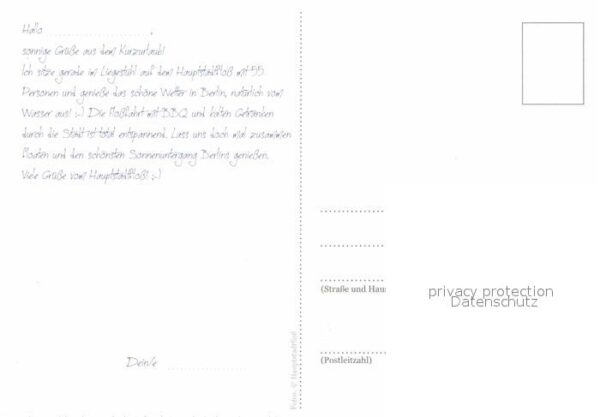 Hallo ....................,
sonnige Grüße aus dem Kurzurlaub!
Ich sitze gerade im Liegestuhl auf dem Hauptstadtfloß mit 55
Personen und genieße das schöne Wetter in Berlin, natürlich vom
Wasser aus! ;-) Die Floßfahrt mit BBQ und kalten Getränken
durch die Stadt ist total entspannend. Lass uns doch mal zusammen
floaten und den schönsten Sonnenuntergang Berlins genießen.
Viele Grüße vom Hauptstadtfloß! ;-)
Dein/e ....................
Fotos: © Hauptstadtfloß
(Straße und Haus
(Postleitzahl)
privacy protection
Datenschutz